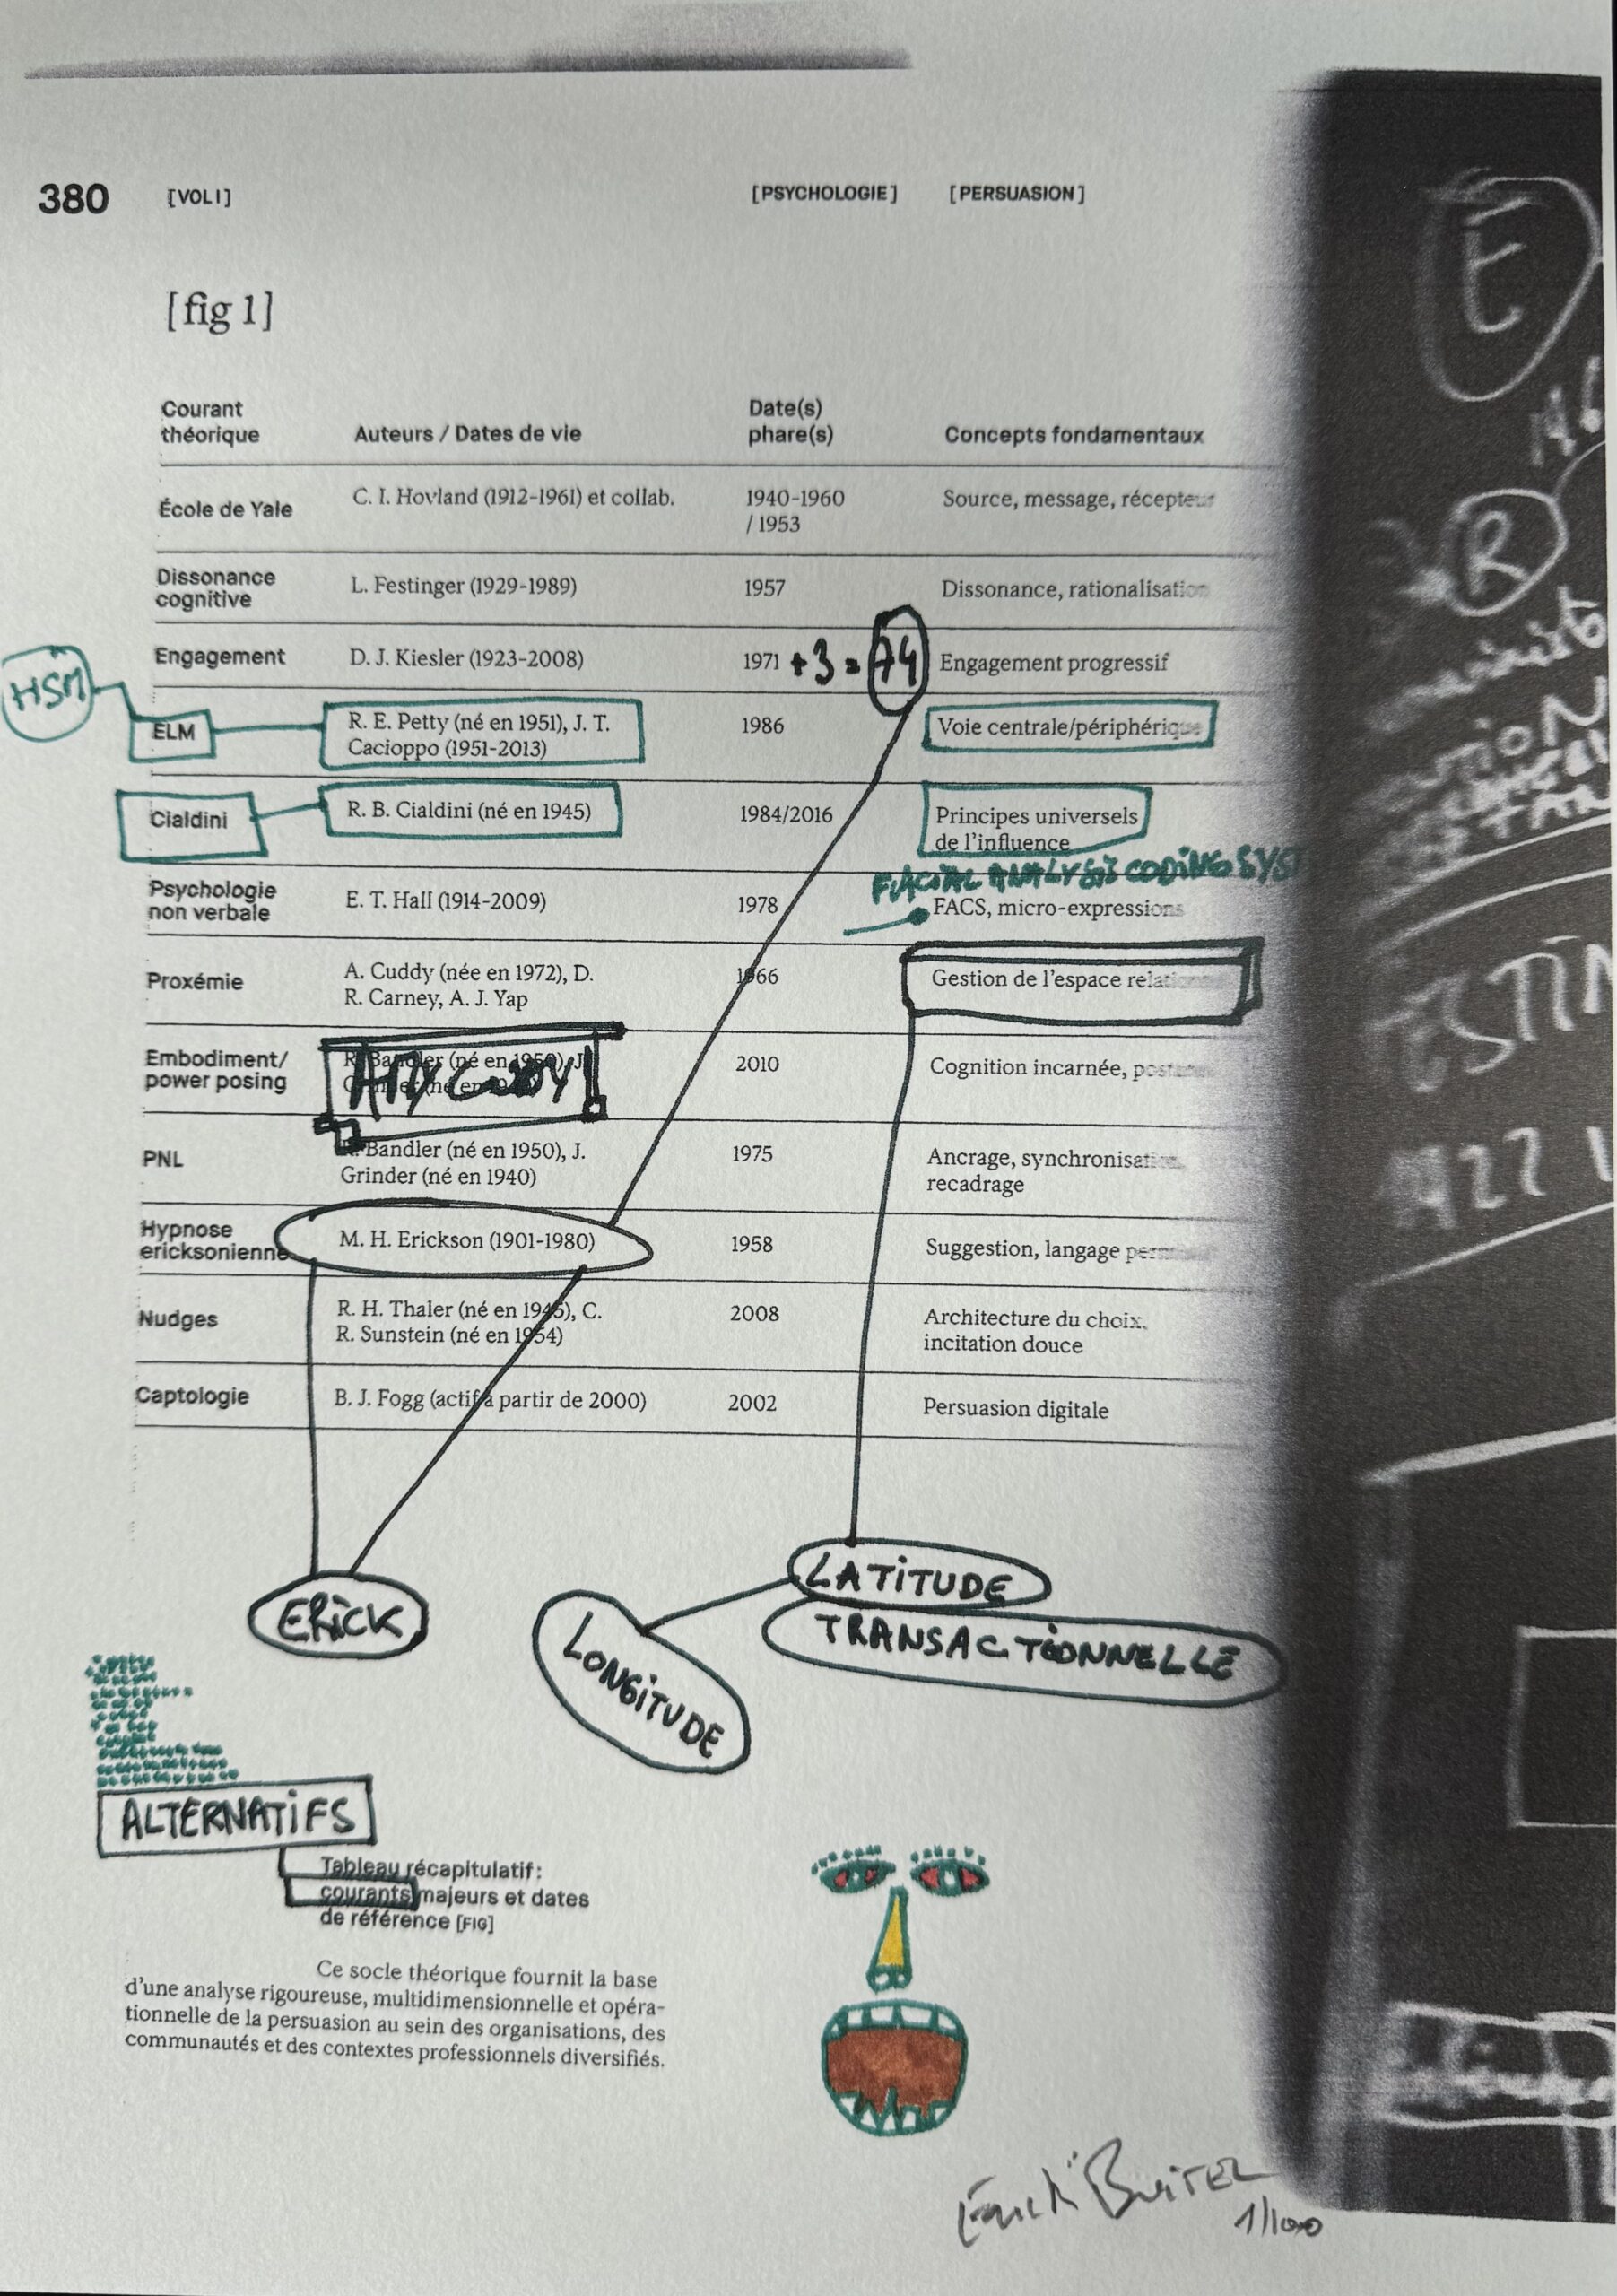 380 [VOL I] [PSYCHOLOGIE] [PERSUASION]
[fig 1]
Courant théorique
Auteurs / Dates de vie
Date(s) phare(s)
Concepts fondamentaux
École de Yale
C. I. Hovland (1912-1961) et collab.
1940-1960
/ 1953
Source, message, récepteur
Dissonance
cognitive
L. Festinger (1929-1989)
1957
Dissonance, rationalisation
Engagement
D. J. Kiesler (1923-2008)
1971 +3 = 74
Engagement progressif
HSM
ELM
R. E. Petty (né en 1951), J. T.
Cacioppo (1951-2013)
1986
Voie centrale/périphérique
Cialdini
R. B. Cialdini (né en 1945)
1984/2016
Principes universels
de l'influence
FACIAL ANALYSIS CODING SYST
Psychologie
non verbale
E. T. Hall (1914-2009)
1978
FACS, micro-expressions
Proxémie
A. Cuddy (née en 1972), D.
R. Carney, A. J. Yap
1966
Gestion de l'espace
Embodiment/
power posing
R. Bandler (né en 1950), J.
2010
Cognition incarnée,
PNL
Bandler (né en 1950), J.
Grinder (né en 1940)
1975
Ancrage, synchronisation,
recadrage
Hypnose
ericksonienne
M. H. Erickson (1901-1980)
1958
Suggestion, langage
Nudges
R. H. Thaler (né en 1945), C.
R. Sunstein (né en 1954)
2008
Architecture du choix,
incitation douce
Captologie
B. J. Fogg (actif à partir de 2000)
2002
Persuasion digitale
ERICK
LATITUDE
TRANSACTIONNELLE
LONGITUDE
ALTERNATIFS
Tableau récapitulatif :
courants majeurs et dates
de référence [FIG]
Ce socle théorique fournit la base
d'une analyse rigoureuse, multidimensionnelle et opéra-
tionnelle de la persuasion au sein des organisations, des
communautés et des contextes professionnels diversifiés.
1/100
E
R